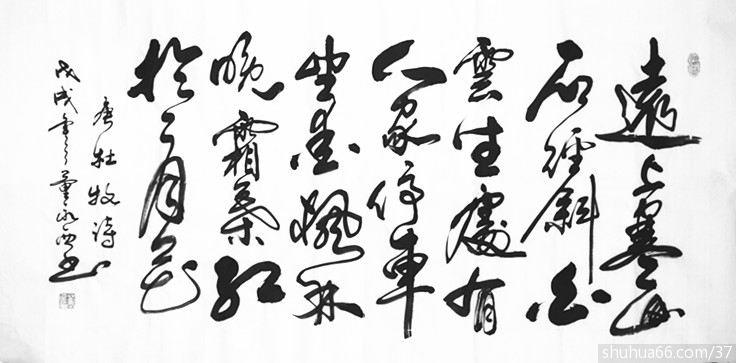 遠上寒山
石徑斜白
雲生處有
人家停車
坐愛楓林
晚霜葉紅
於二月花
唐杜牧詩
戊戌董書
shuhua66.com/37